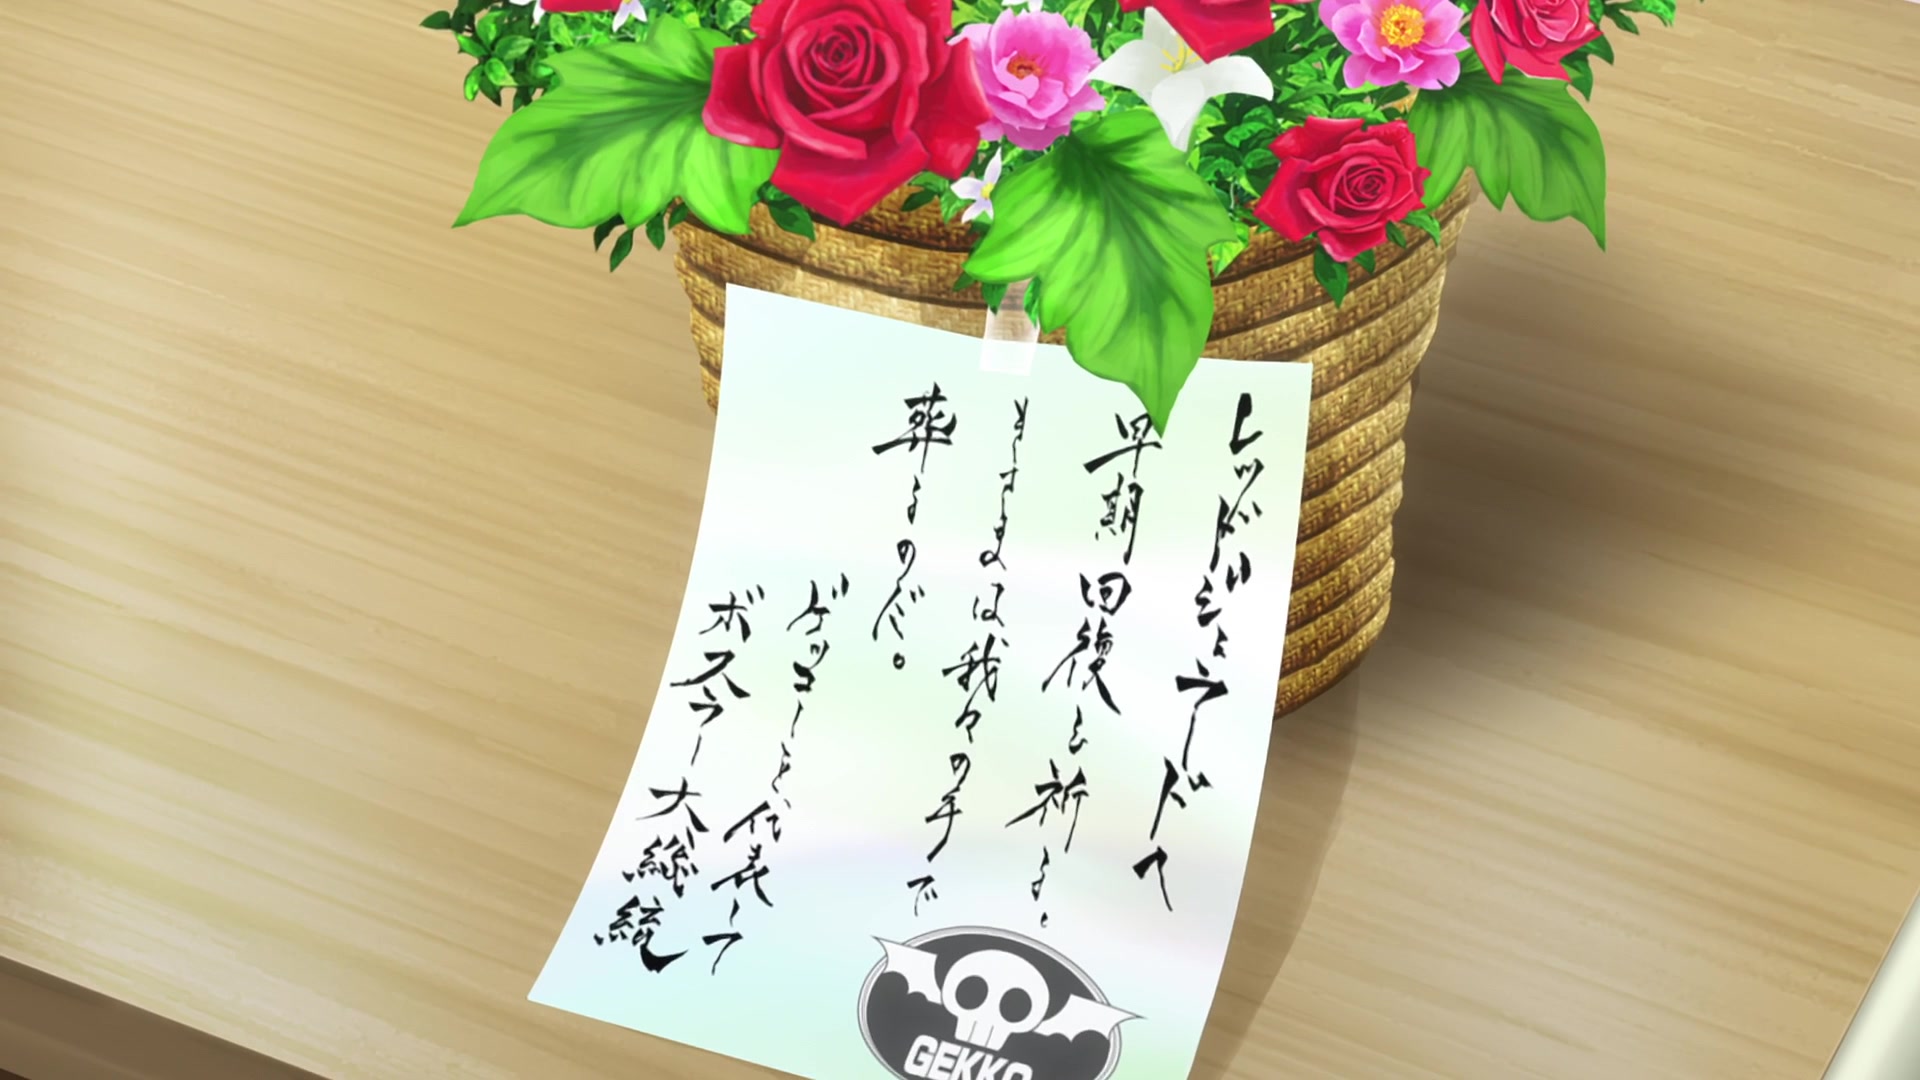 レッドドジュワードへ
早期回復を祈る、
きさまは我々の手で
葬るのだ。
ゲッコーを代表して
ボスラー大総統
GEKKO